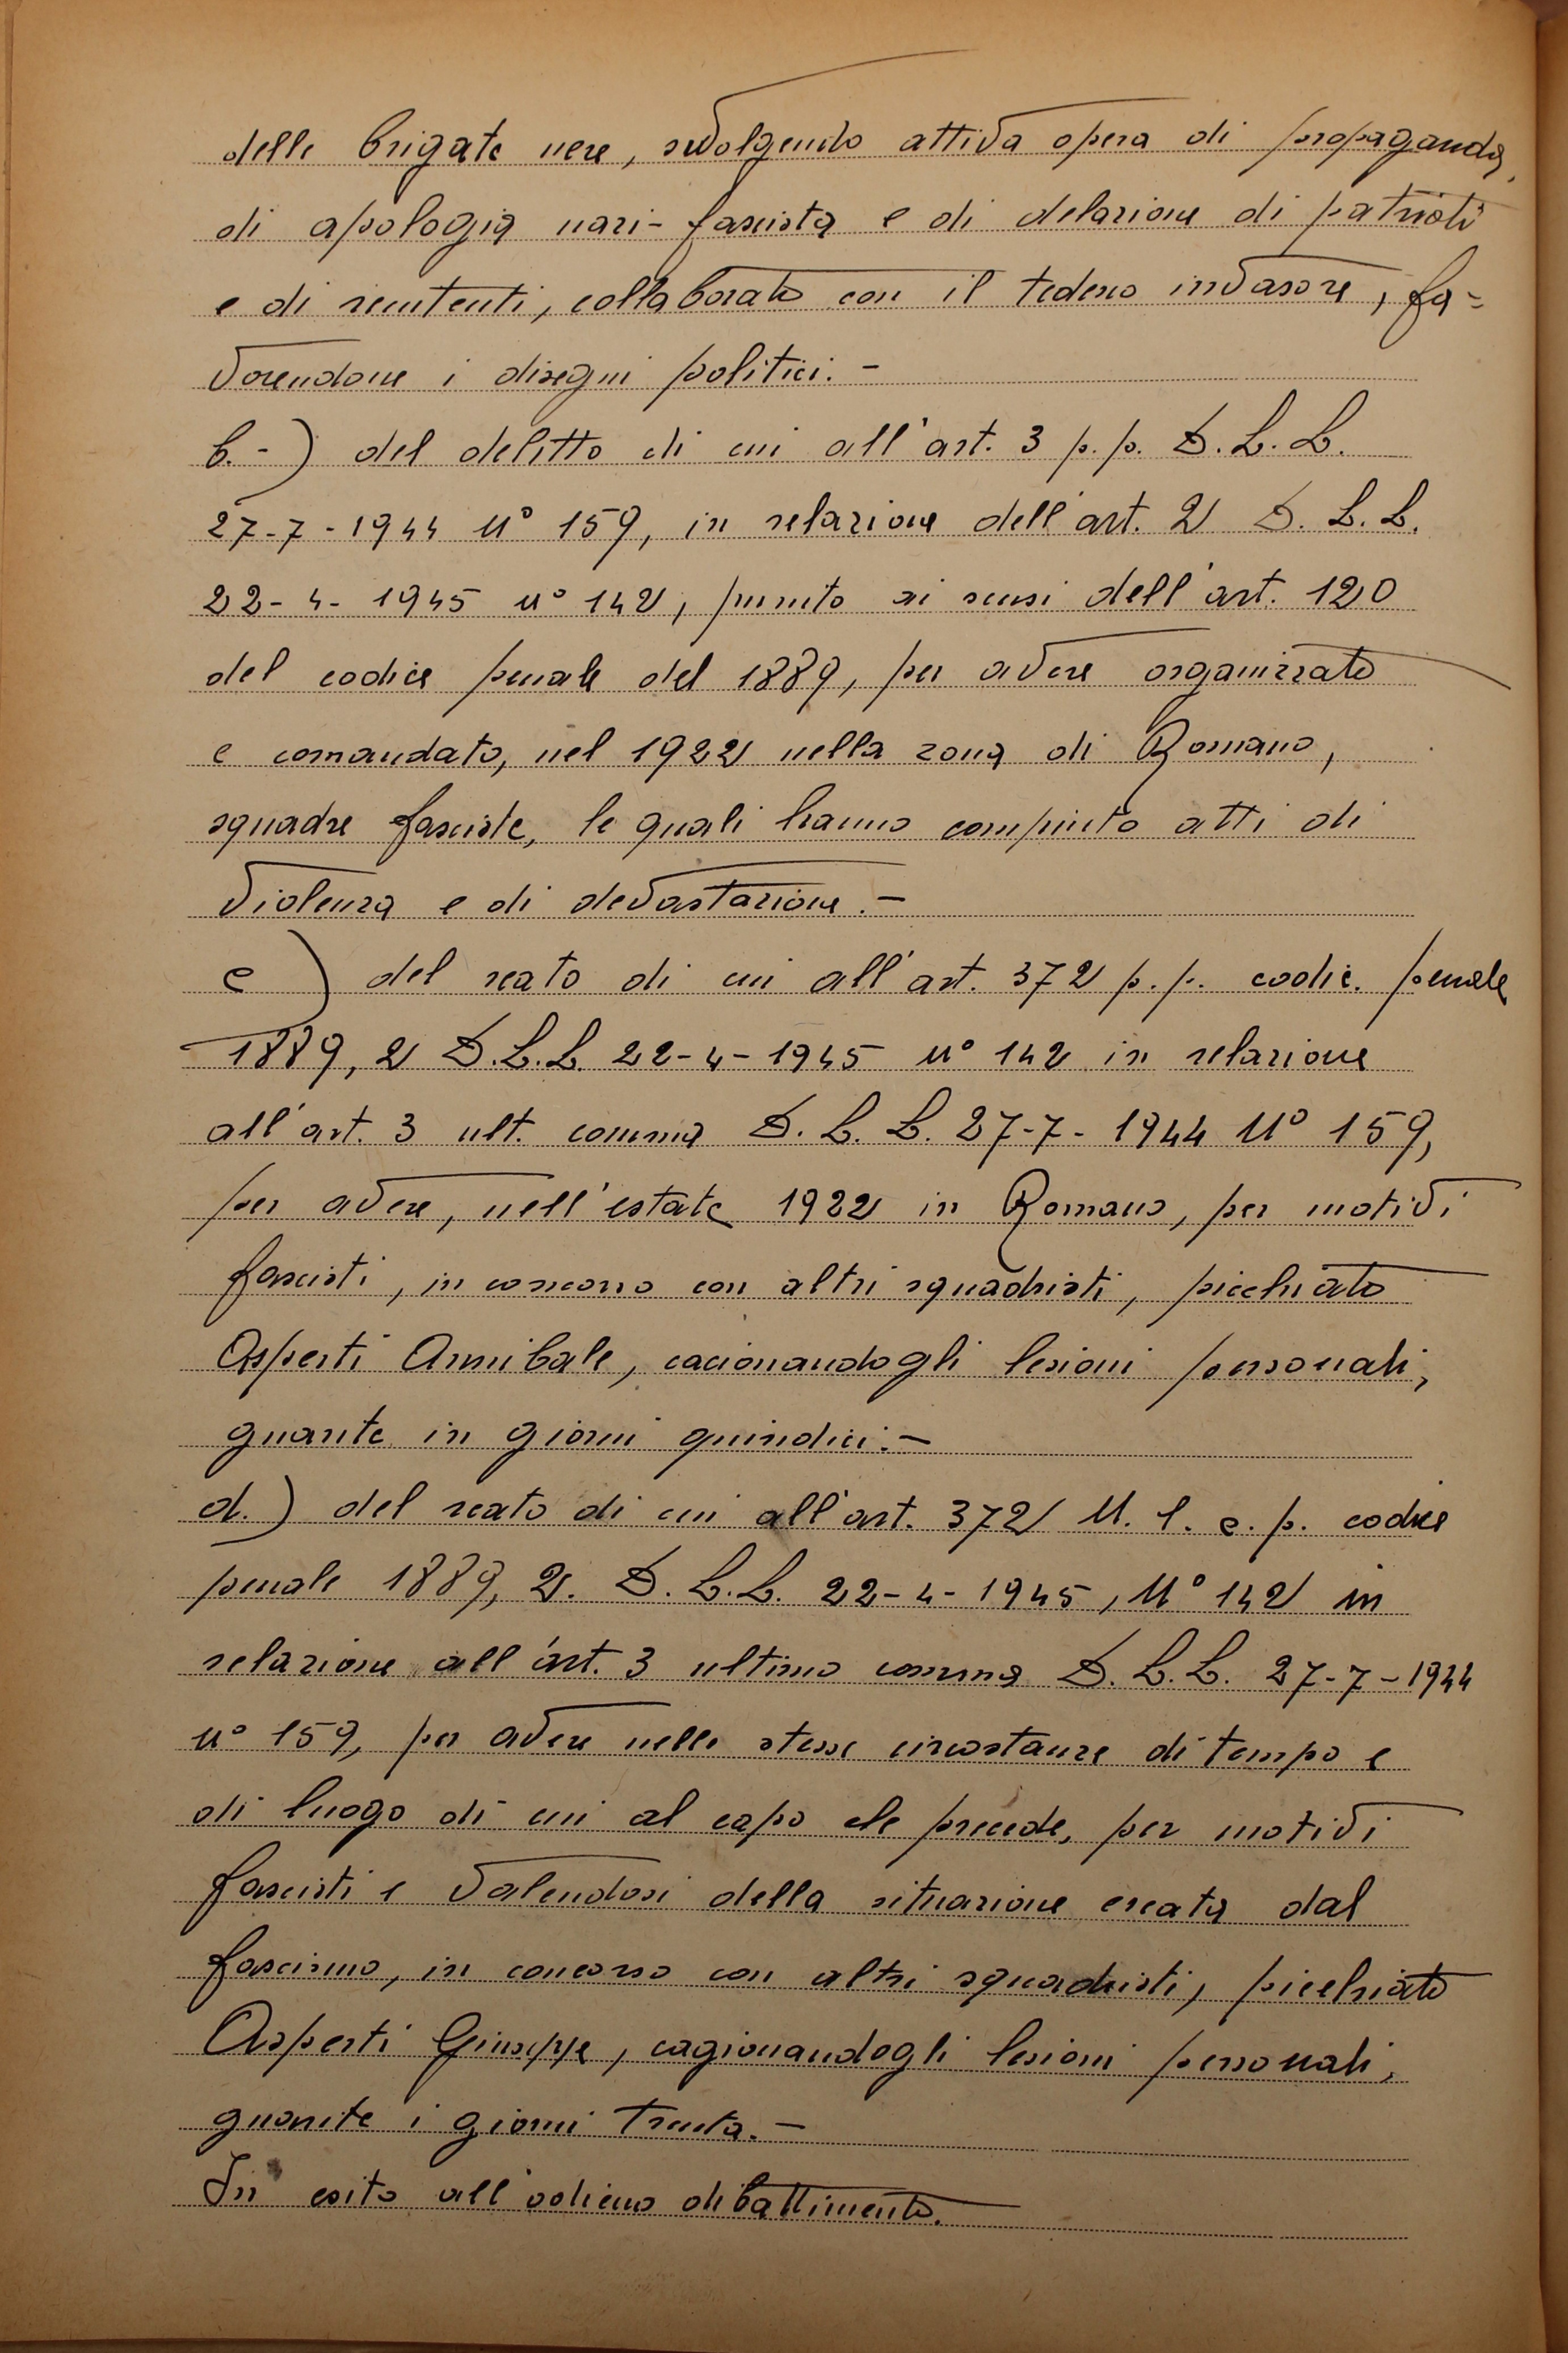 delle brigate nere, svolgendo attiva opera di propaganda,
di apologia nazi-fascista e di delazione di patrioti
e di renitenti, collaborato con il tedesco invasore, fa=
vorendone i disegni politici. -
b.-) del delitto di cui all'art. 3 p.p. D.L.L.
27-7-1944 N° 159, in relazione dell'art. 2 D.L.L.
22-4-1945 n° 142, punito ai sensi dell'art. 120
del codice penale del 1889, per avere organizzato
e comandato, nel 1922 nella zona di Romano,
squadre fasciste, le quali hanno compiuto atti di
violenza e di devastazione. -
c) del reato di cui all'art. 372 p.p. codic. penale
1889, 2 D.L.L. 22-4-1945 n° 142 in relazione
all'art. 3 ult. comma D.L.L. 27-7-1944 N° 159,
per avere, nell'estate 1922 in Romano, per motivi
fascisti, in concorso con altri squadristi, picchiato
Asperti Annibale, cacionandogli lesioni personali,
guarite in giorni quindici. -
d.) del reato di cui all'art. 372 N. 1. c. p. codice
penale 1889, 2. D.L.L. 22-4-1945, N° 142 in
relazione all'art. 3 ultimo comma D.L.L. 27-7-1944
n° 159, per avere nelle stesse circostanze di tempo e
di luogo di cui al capo che precede, per motivi
fascisti e valendosi della situazione creata dal
fascismo, in concorso con altri squadristi, picchiato
Asperti Giuseppe, cagionandogli lesioni personali,
guarite i giorni trenta. -
In esito all'odierno dibattimento.